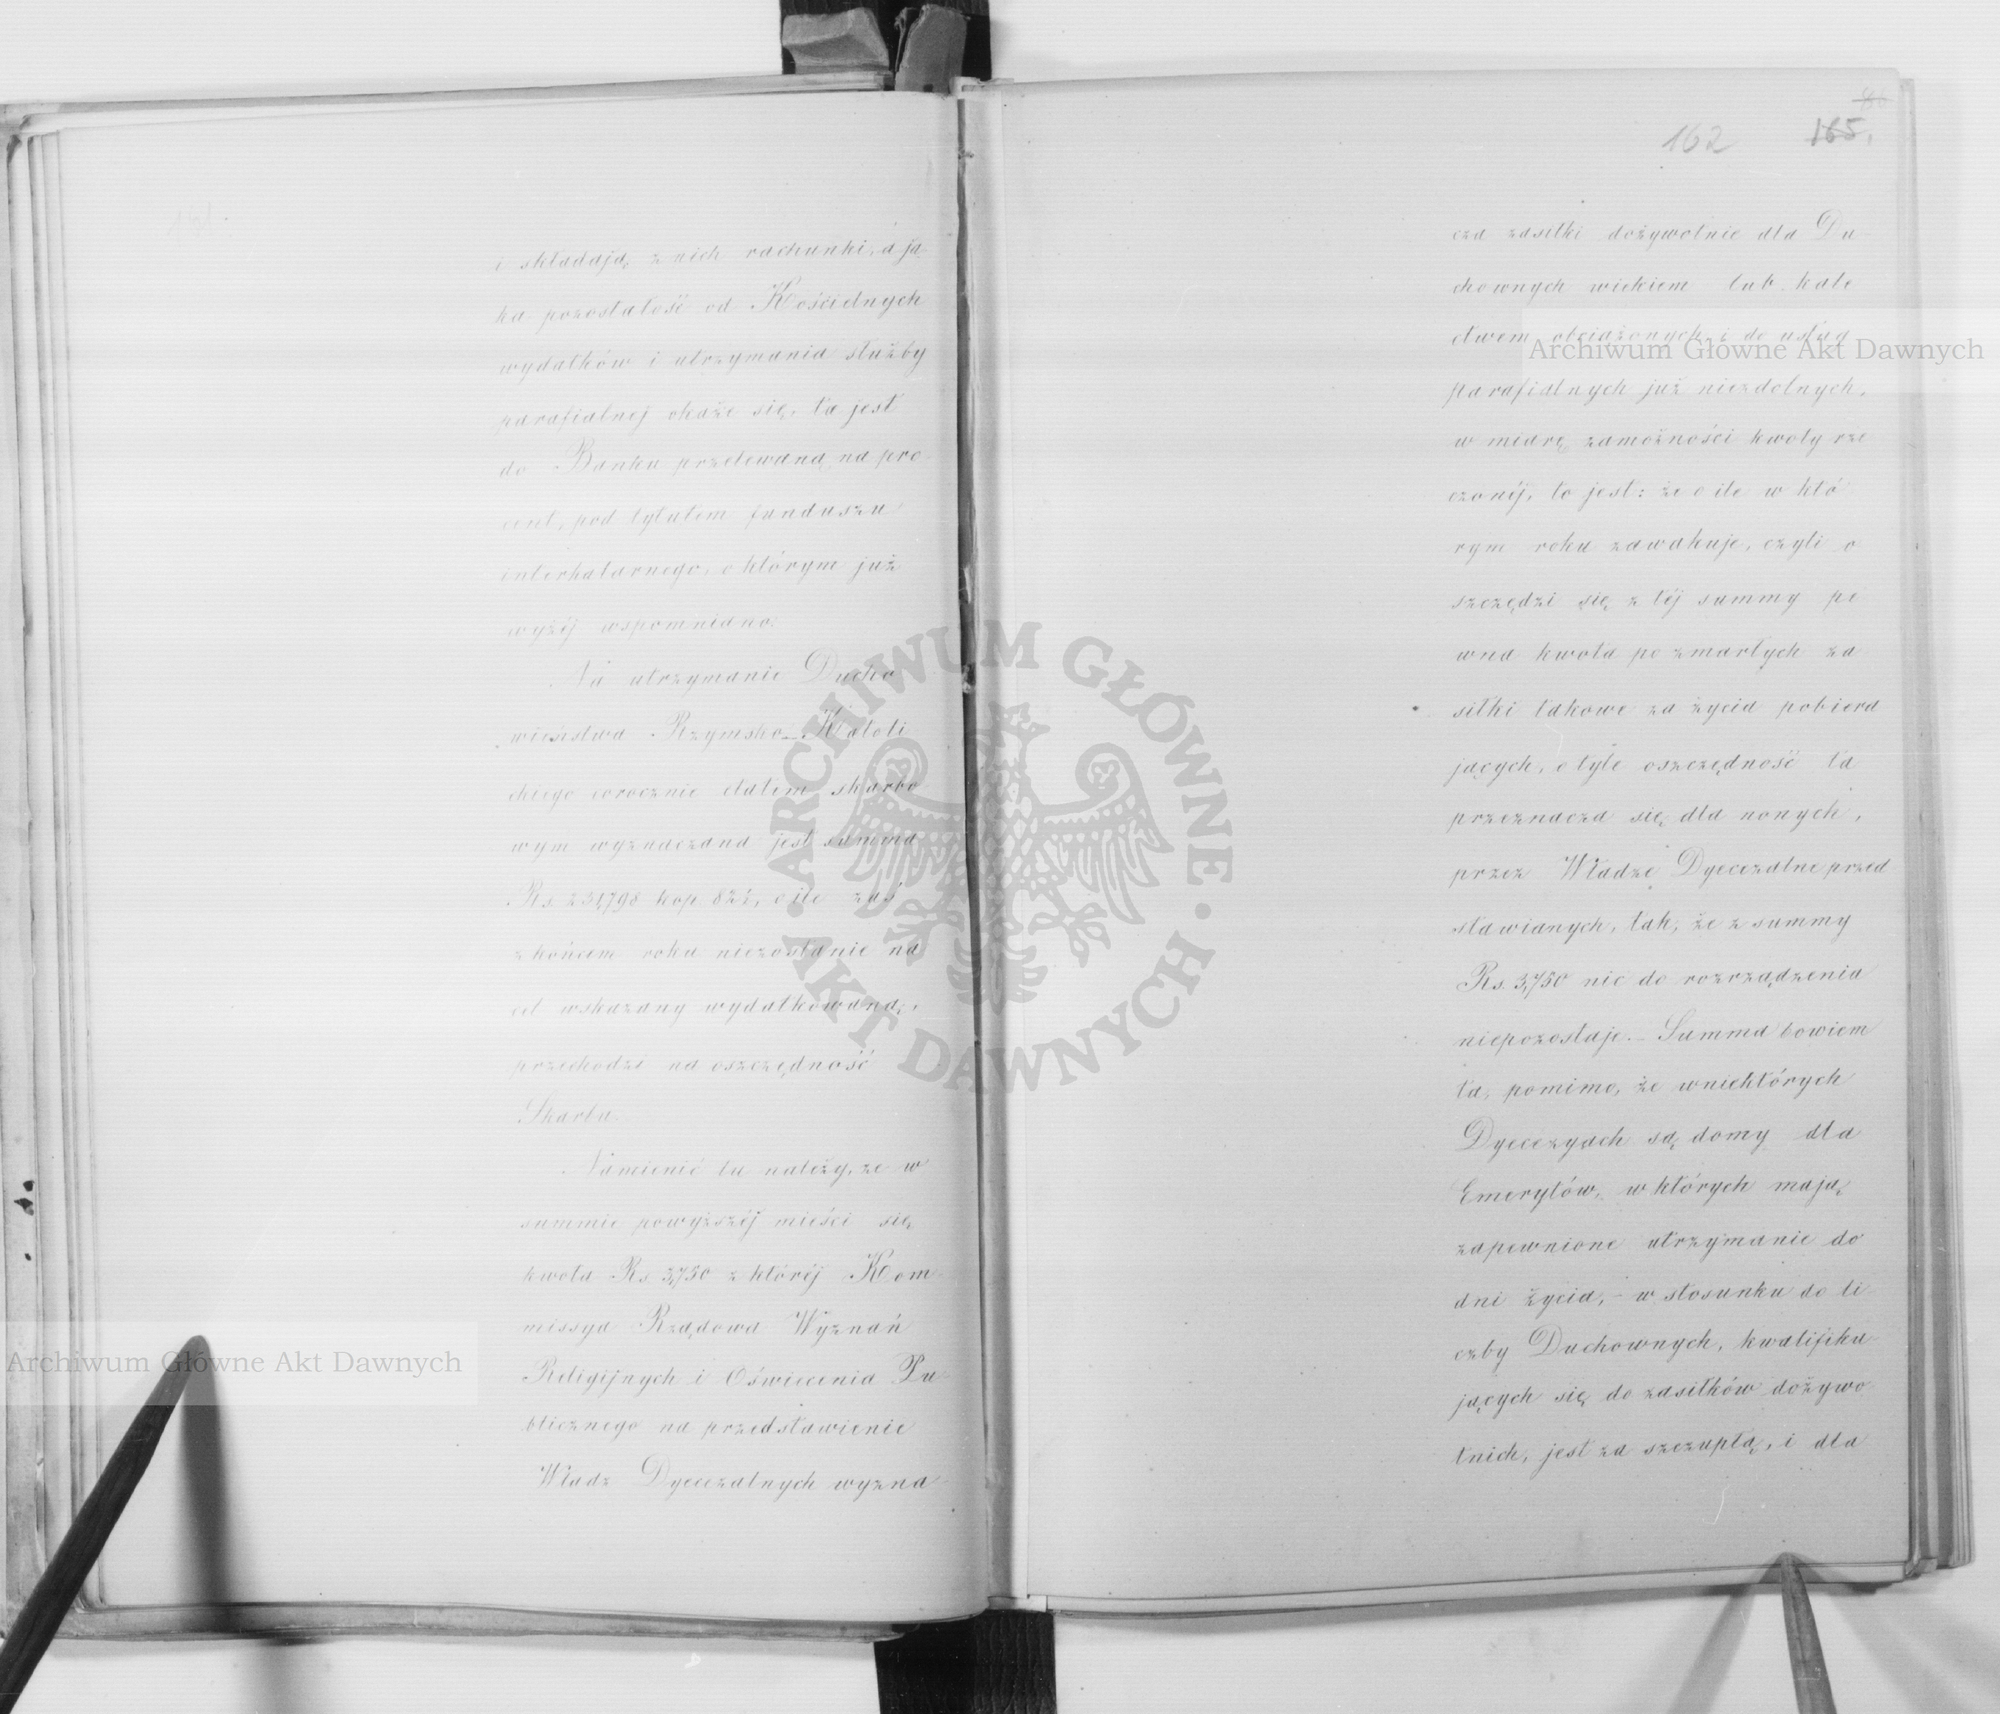 i składają z nich rachunki, a ja
ka pozostałość od Kościelnych
wydatków i utrzymania służby
parafialnej okaże się, ta jest
do Banku przelewaną na pro
cent, pod tytułem funduszu
interkalarnego, o którym już
wyżéj wspomniano.
Na utrzymanie Ducho
wieństwa Rzymsko-Katoli
ckiego corocznie etatem skarbo
wym wyznaczana jest summa
Rs. kop. 82½, o ile zaś
z końcem roku niezostanie na
cel wskazany wydatkowaną,
przechodzi na oszczędność
Skarbu.
Namienić tu należy, ze w
summie powyższéj mieści się
kwota Rs. 3,750 z któréj Kom
missya Rządowa Wyznań
Religijnych i Oświecenia Pu
blicznego na przedstawienie
Władz Dyecezalnych wyzna
162 165.
cza zasiłki dożywotnie dla Du
chownych wiekiem lub kale
ctwem obciążonych i do usług
parafialnych już niezdolnych,
w miarę zamożności kwoty rze
czonéj, to jest: że o ile w któ
rym roku zawakuje, czyli o
szczędzi się z téj summy pe
wna kwota po zmarłych za
siłki takowe za życia pobiera
jących, o tyle oszczędność ta
przeznacza się dla nonych,
przez Władze Dyecezalne przed
stawianych, tak, że z summy
Rs. 3,750 nic do rozrządzenia
niepozostaje. – Summa bowiem
ta, pomimo, że w niektórych
Dyecezyach są domy dla
Emerytów, w których mają
zapewnione utrzymanie do
dni życia, – w stosunku do li
czby Duchownych, kwalifiku
jących się do zasiłków dożywo
tnich, jest za szczupłą, i dla
Archiwum Główne Akt Dawnych
Archiwum Główne Akt Dawnych
ARCHIWUM GŁÓWNE
AKT DAWNYCH